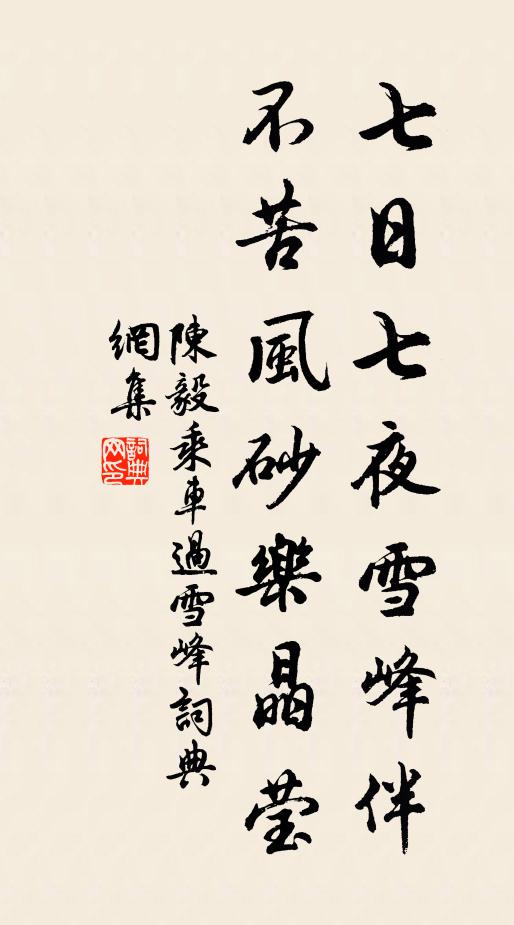 七日七夜雪峰伴
不苦風砂樂晶莹
陳毅乘車過雪峰詞典
網集
詞典
网印